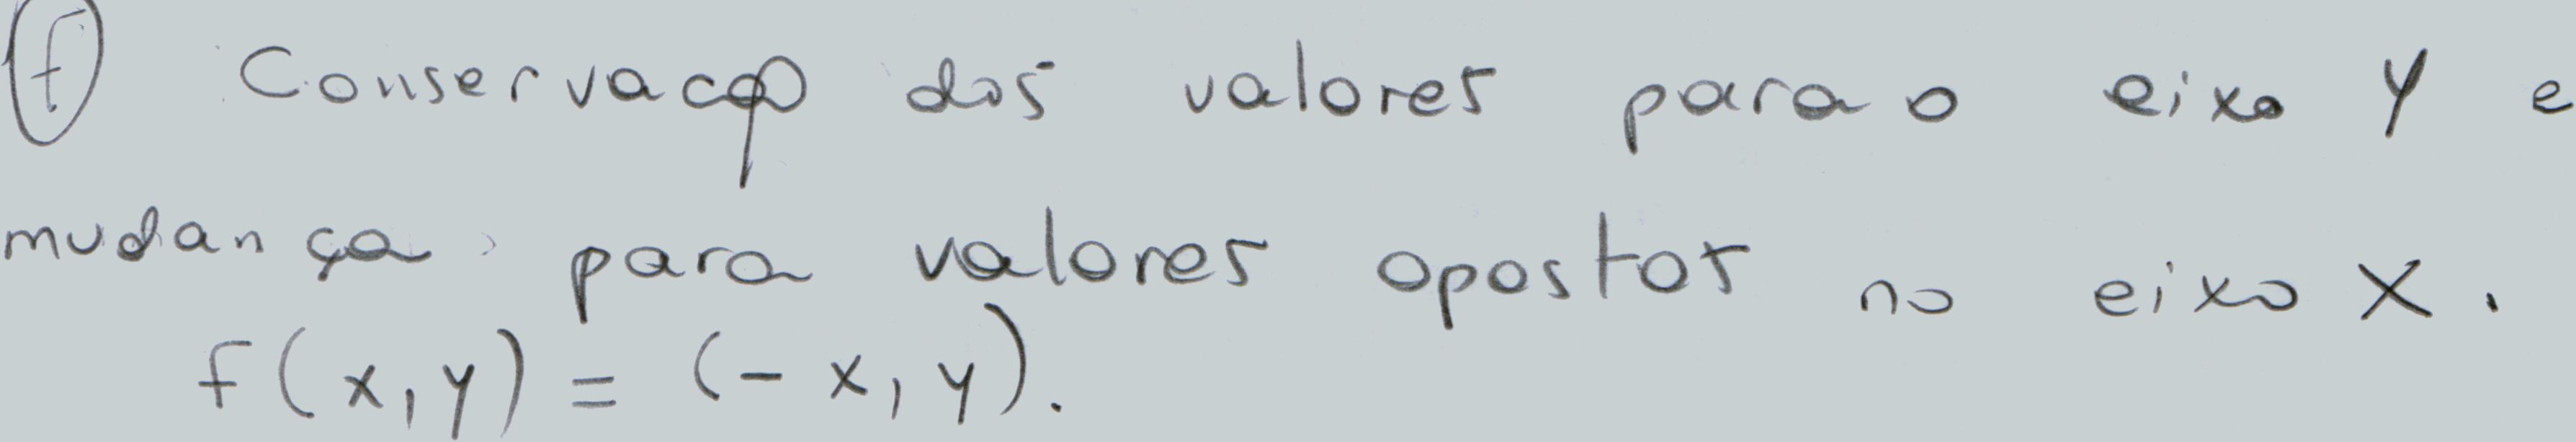 f Conservação dos valores para o eixo y e
mudança para valores opostos no eixo X.
f(x,y) = (-x,y).